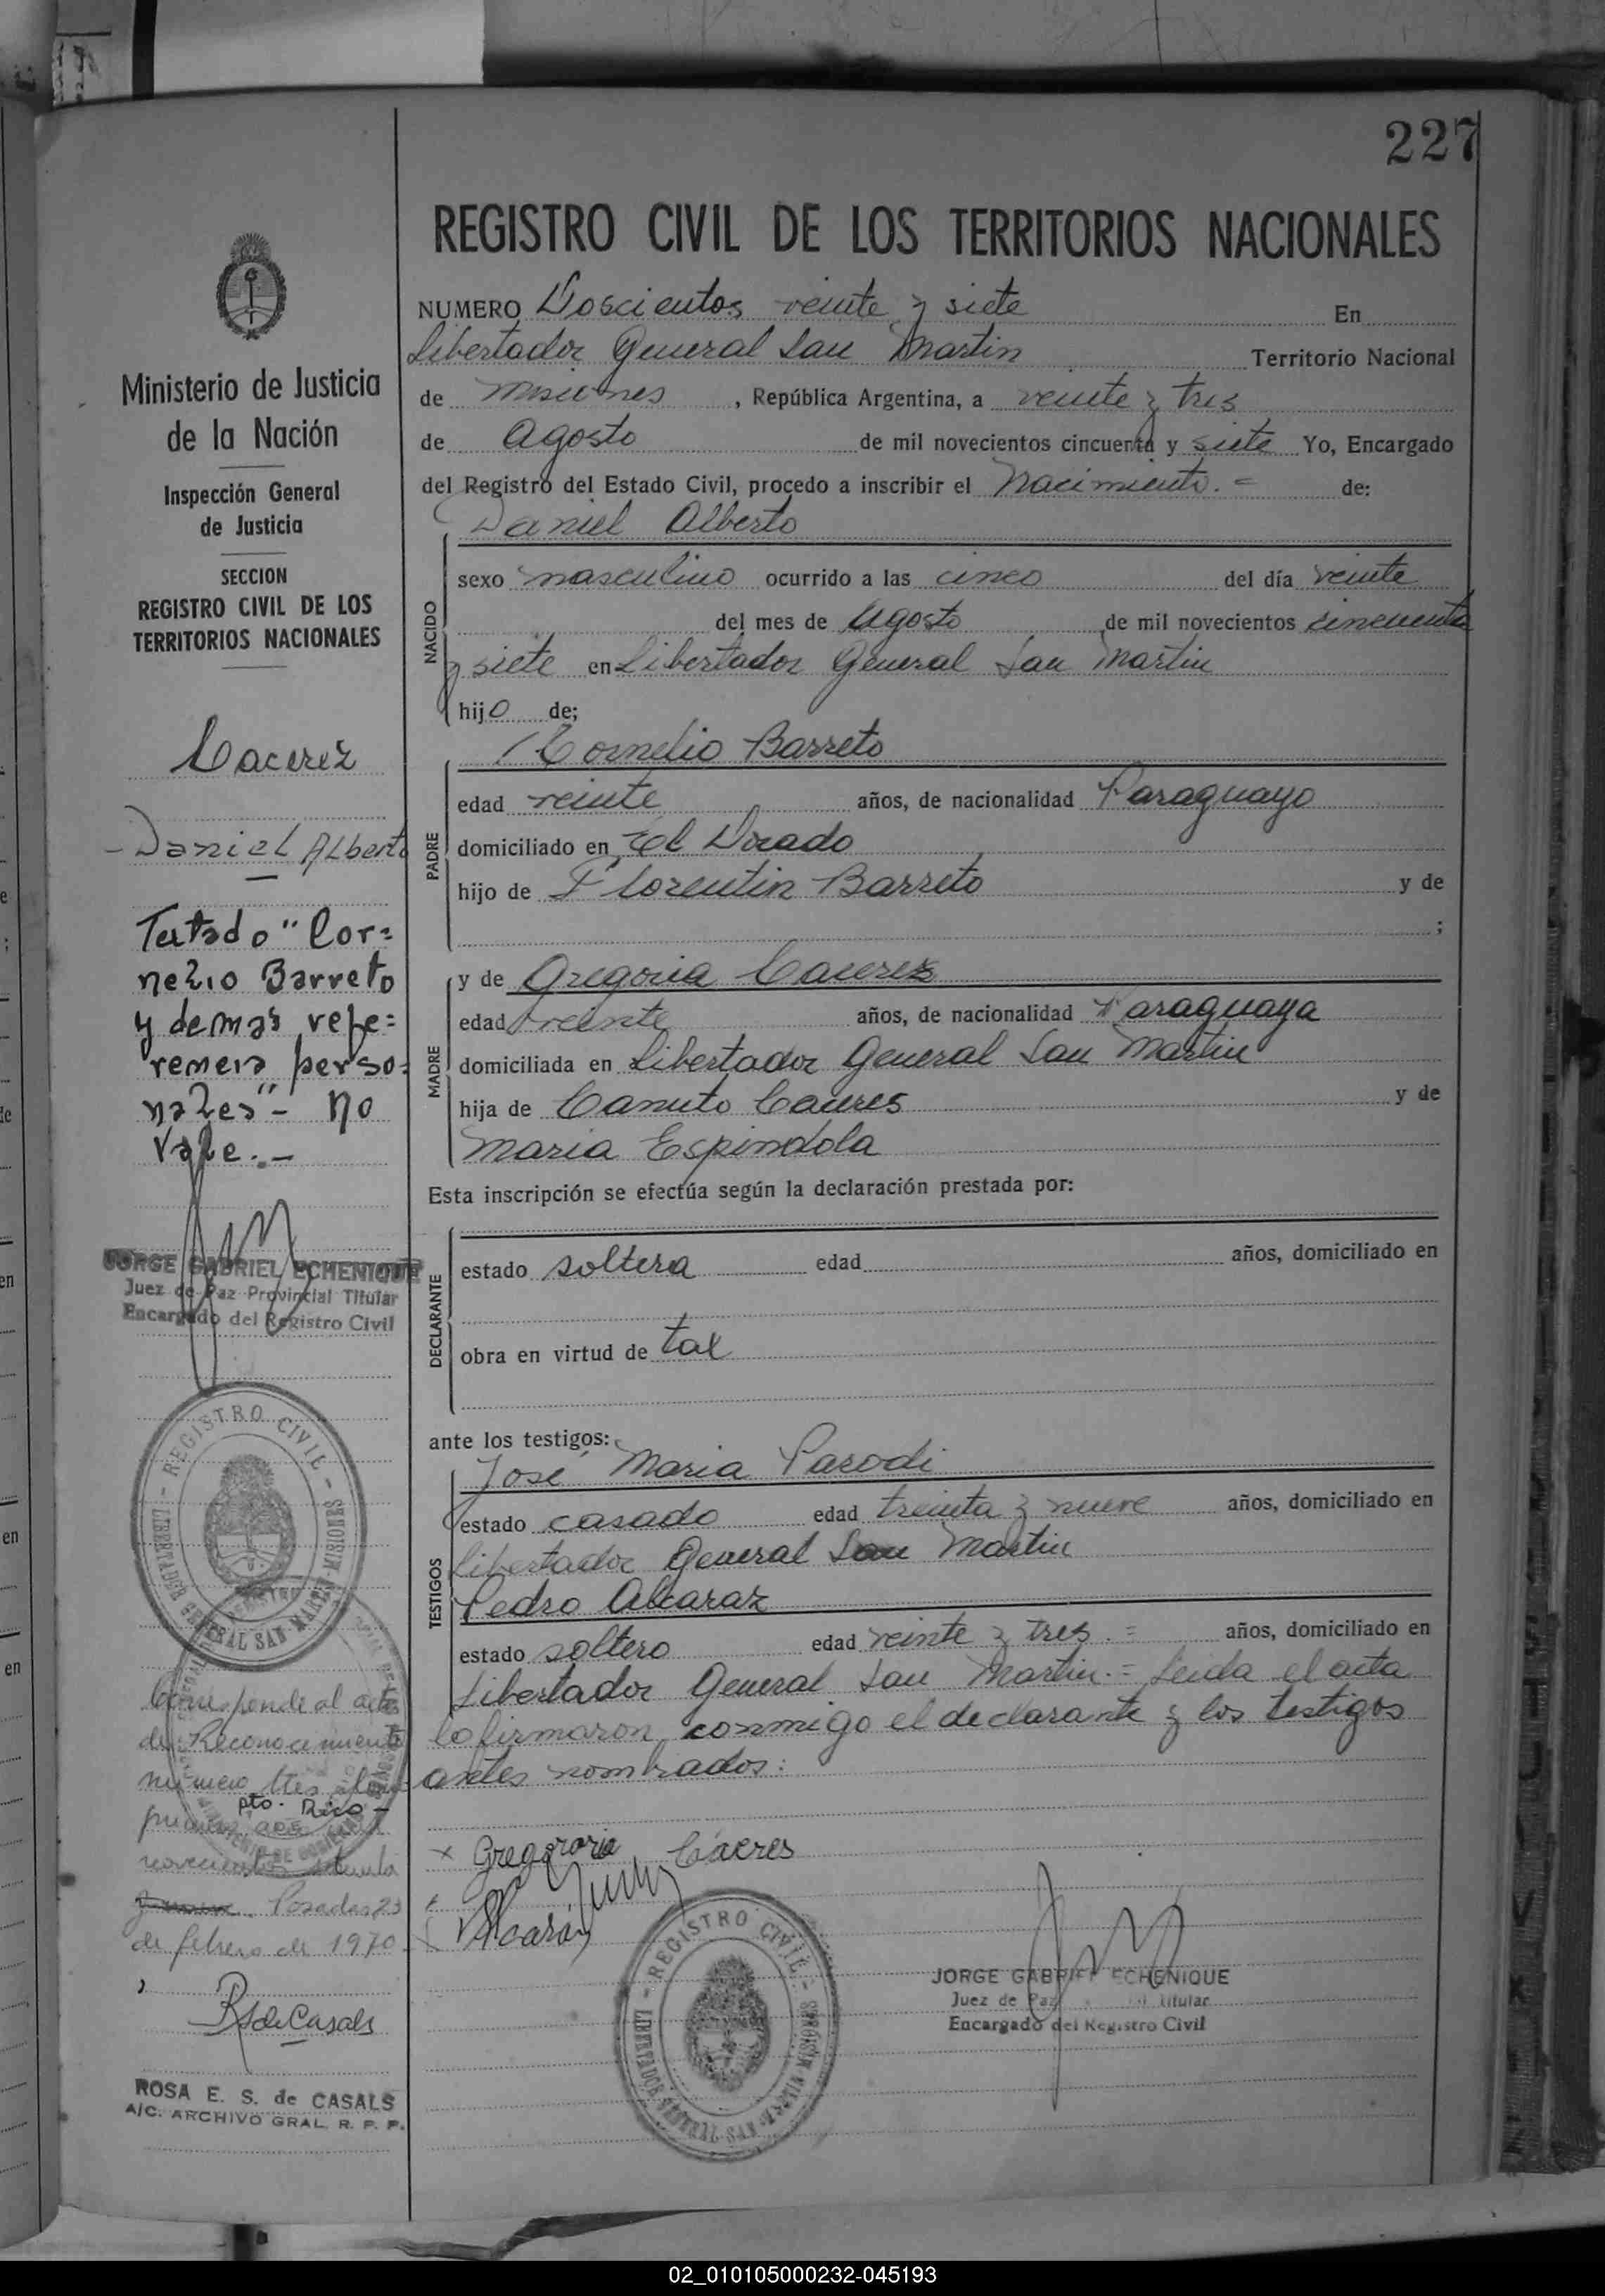 227
REGISTRO CIVIL DE LOS TERRITORIOS NACIONALES
NUMERO Doscientos veinte y siete En
Libertador General San Martin Territorio Nacional
de Misiones, República Argentina, a veinte y tres
de Agosto de mil novecientos cincuenta y siete Yo, Encargado
del Registro del Estado Civil, procedo a inscribir el Nacimiento.= de:
Daniel Alberto
NACIDO
sexo masculino ocurrido a las cinco del día veinte
del mes de Agosto de mil novecientos cincuenta
y siete en Libertador General San Martin
hijo de;
Cornelio Barreto
PADRE
edad veinte años, de nacionalidad Paraguayo
domiciliado en El Dorado
hijo de Florentin Barreto y de
;
MADRE
y de Gregoria Caceres
edad veinte años, de nacionalidad Paraguaya
domiciliada en Libertador General San Martin
hija de Canuto Caceres y de
Maria Espindola
Esta inscripción se efectúa según la declaración prestada por:
DECLARANTE
estado soltera edad años, domiciliado en
obra en virtud de tal
ante los testigos:
José Maria Parodi
TESTIGOS
estado casado edad treinta y nueve años, domiciliado en
Libertador General San Martin
Pedro Alcaraz
estado soltero edad veinte y tres.= años, domiciliado en
Libertador General San Martin.= Leida el acta
la firmaron conmigo el declarante y los testigos
antes nombrados:
x Gregoria Cáceres
JORGE GABRIEL ECHENIQUE
Juez de Paz Titular
Encargado del Registro Civil
REGISTRO CIVIL - LIBERTADOR GENERAL SAN MARTIN - MISIONES
Ministerio de Justicia
de la Nación
Inspección General
de Justicia
SECCION
REGISTRO CIVIL DE LOS
TERRITORIOS NACIONALES
Cacerez
Daniel Alberto
Tertado "Cor=
nelio Barreto
y demas refe=
rencia perso=
nales" - no
vale.-
JORGE GABRIEL ECHENIQUE
Juez de Paz Provincial Titular
Encargado del Registro Civil
REGISTRO CIVIL - LIBERTADOR GENERAL SAN MARTIN - MISIONES
Corresponde al acta
de Reconocimiento
número tres
Pto. Rico-
novecientos setenta
Posadas 23
de febrero de 1970.
RSdeCasals
ROSA E. S. de CASALS
A/C. ARCHIVO GRAL. R. P. P.
02_010105000232-045193